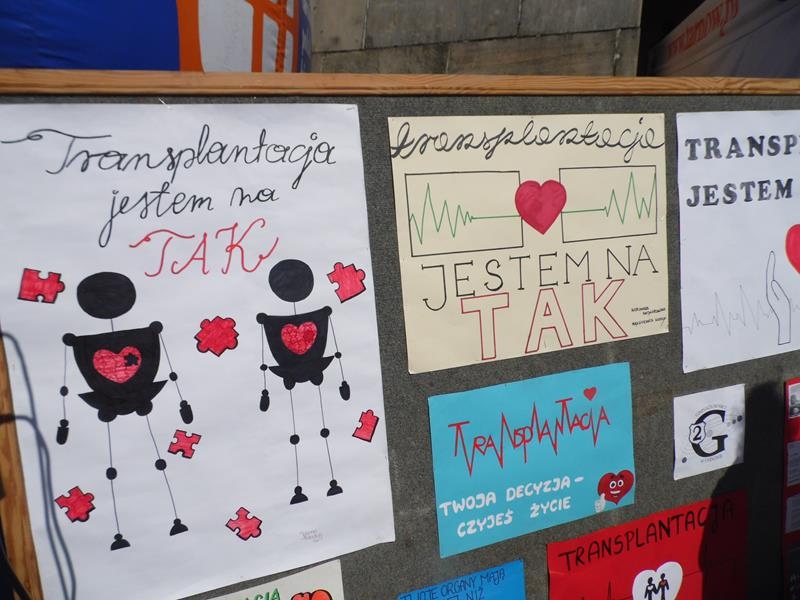 Transplantacja
jestem na
TAK
transplantacja
JESTEM NA
TAK
TRANSP
JESTEM
TRANSPLANTACJA
TWOJA DECYZJA -
CZYJEŚ ŻYCIE
2G
TRANSPLANTACJA
TWOJE ORGANY MAJĄ
NIŻ